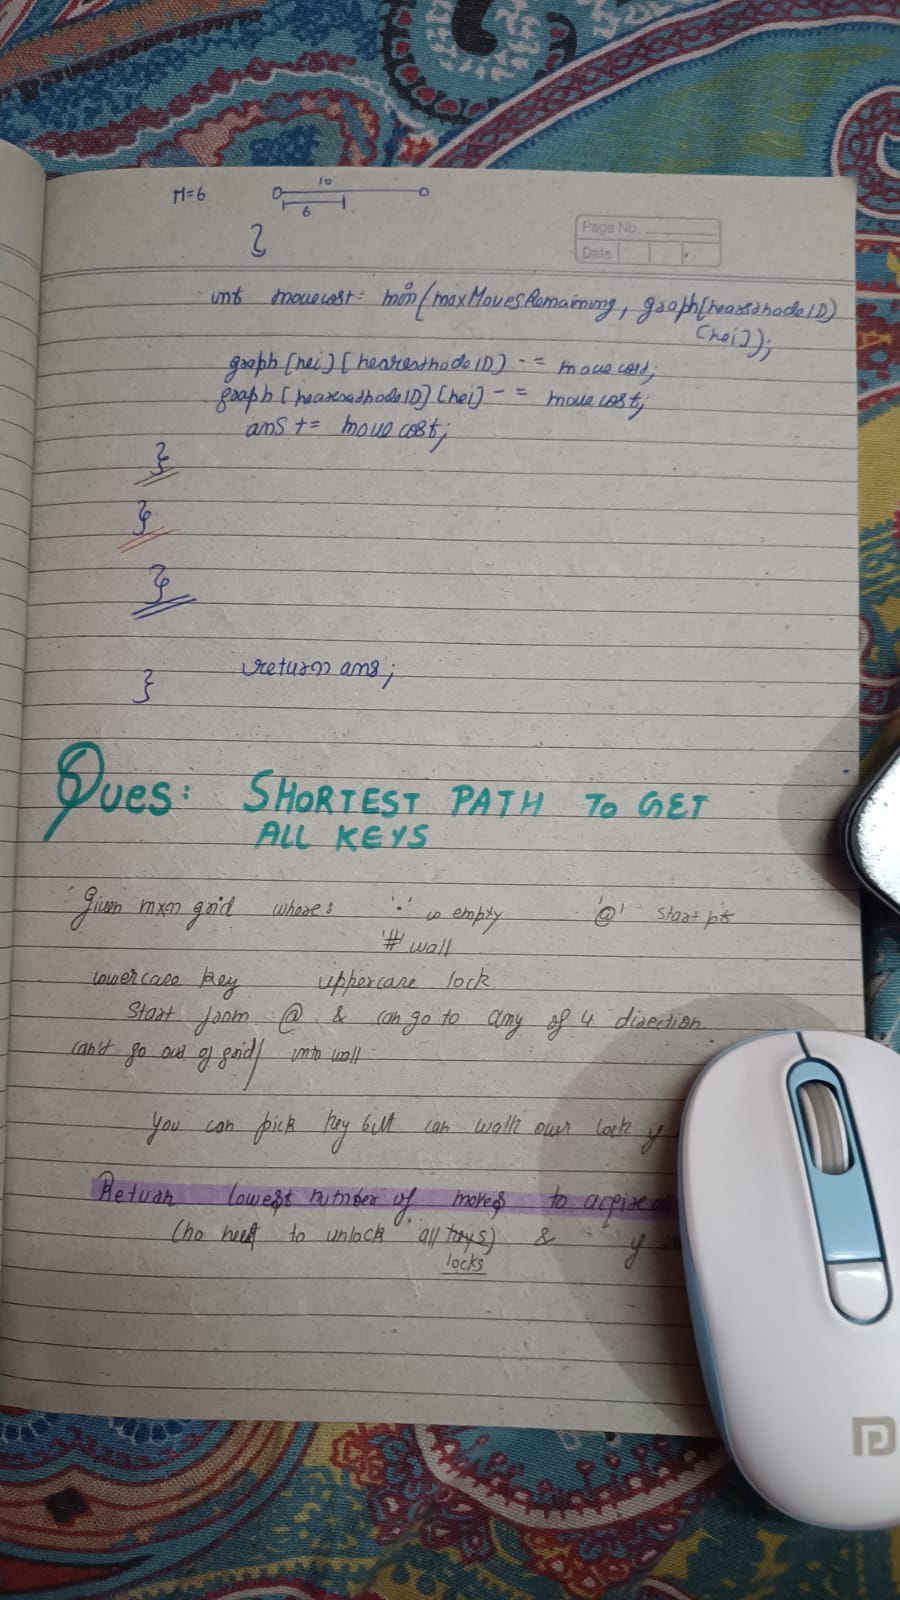 M=6
10
6
}
Page No.
Date
int movecost = min(maxMovesRemaining, graph[nearestnodeID]
[nei]);
graph[nei][nearestnodeID] -= movecost;
graph[nearestnodeID][nei] -= movecost;
ans += movecost;
}
}
}
return ans;
}
Ques: SHORTEST PATH TO GET
ALL KEYS
Given mxn grid where: '.' empty '@' start pt
'#' wall
lowercase key uppercase lock
Start from @ & can go to any of 4 direction.
can't go out of grid / into wall
You can pick key but can walk over lock
Return lowest number of moves to
(no need to unlock all keys) & 
locks